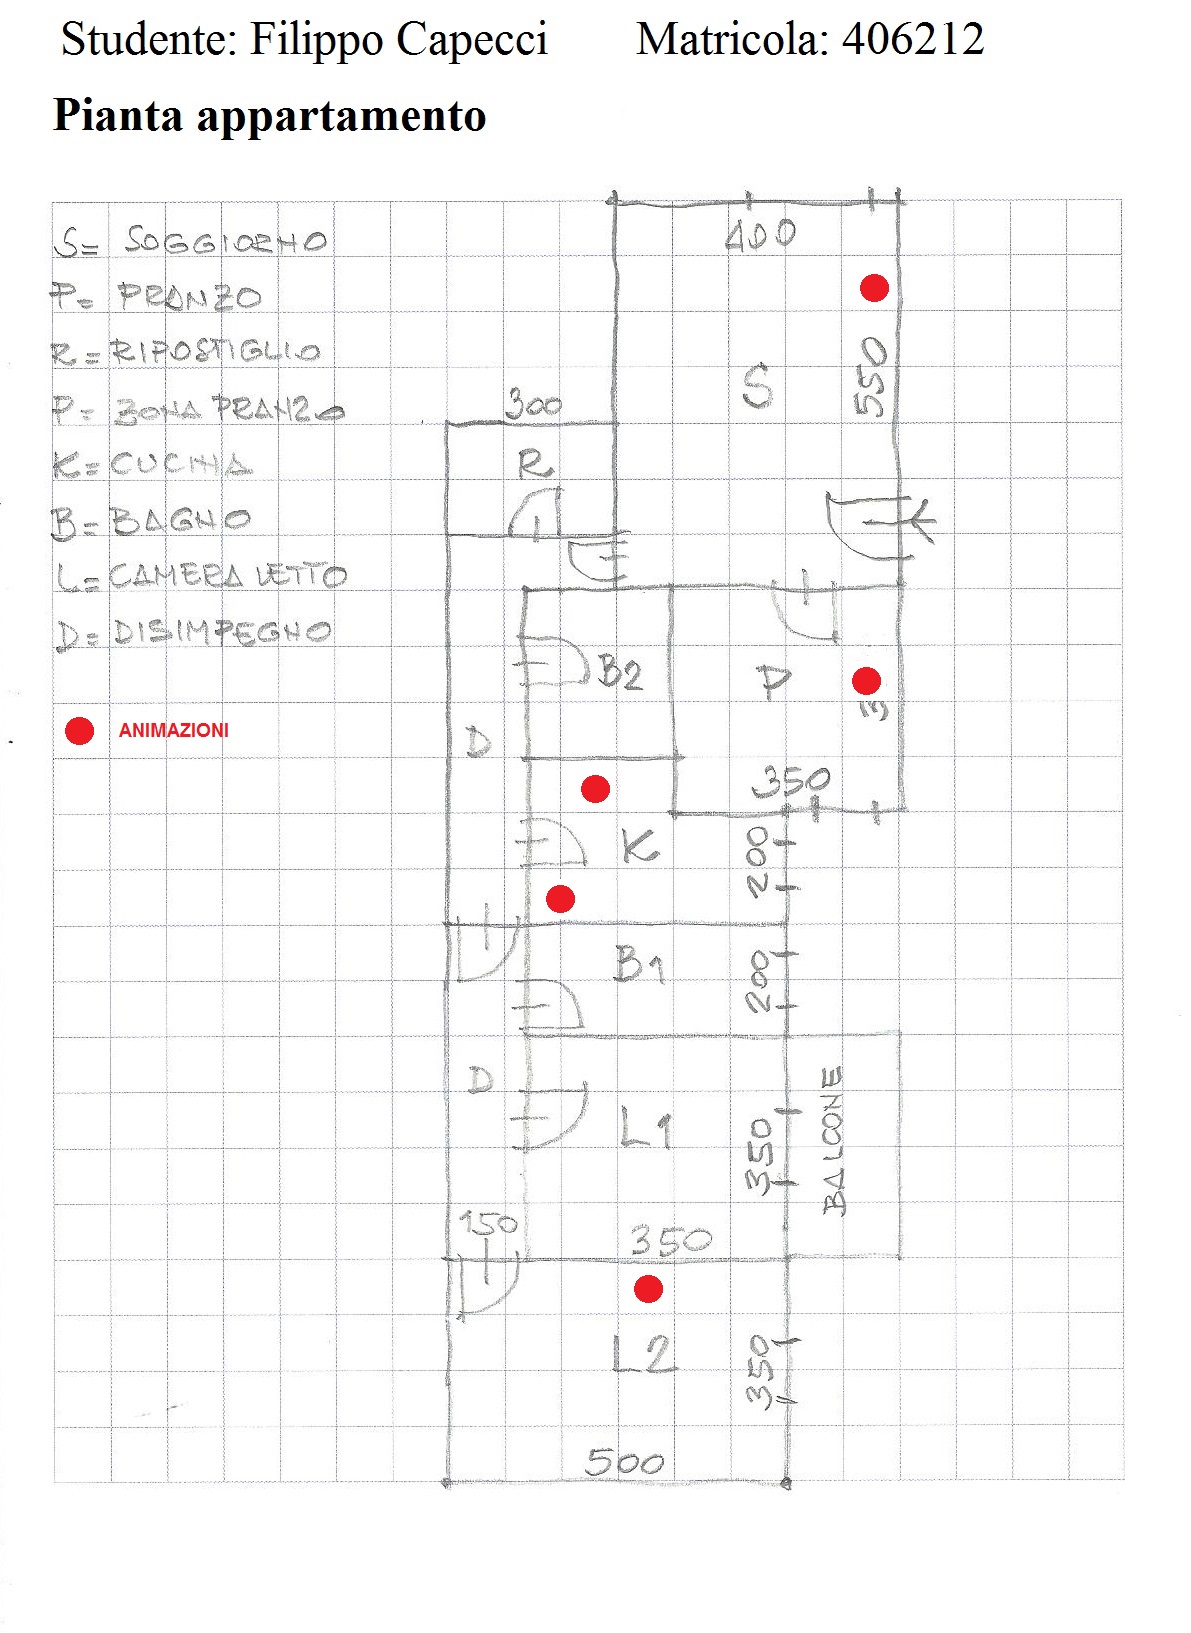 Studente: Filippo Capecci Matricola: 406212
Pianta appartamento
S= SOGGIORNO
P= PRANZO
R= RIPOSTIGLIO
P= ZONA PRANZO
K= CUCINA
B= BAGNO
L= CAMERA LETTO
D= DISIMPEGNO
ANIMAZIONI
400
S
550
300
R
B2
P
D
350
K
200
B1
200
D
L1
350
BALCONE
150
350
L2
350
500